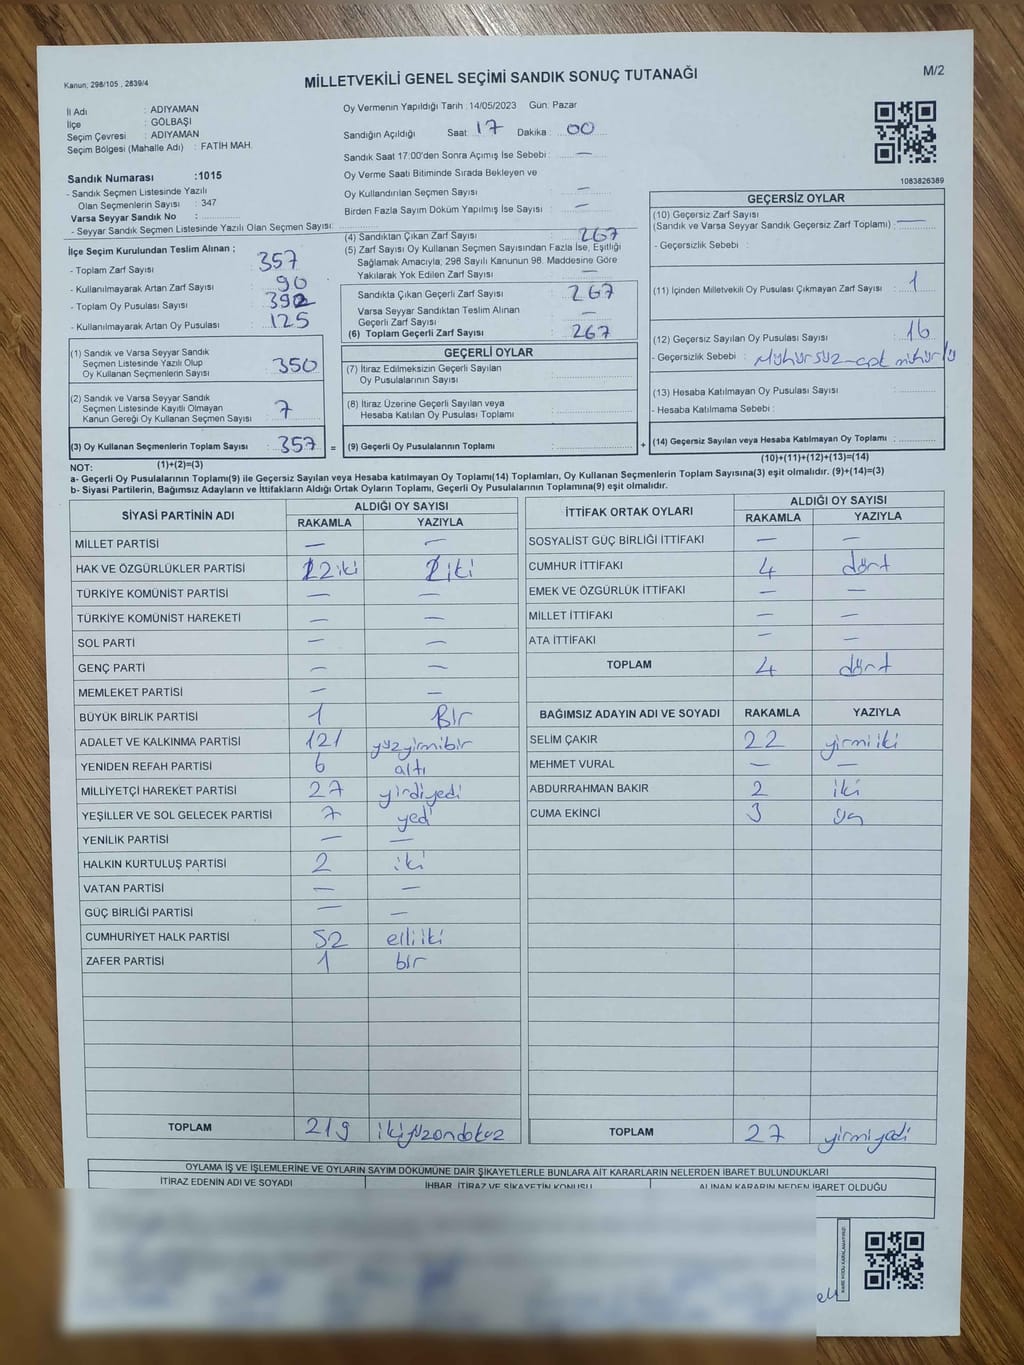 Kanun; 298/105 , 2839/4
MİLLETVEKİLİ GENEL SEÇİMİ SANDIK SONUÇ TUTANAĞI
M/2
İl Adı : ADIYAMAN
İlçe : GÖLBAŞI
Seçim Çevresi : ADIYAMAN
Seçim Bölgesi (Mahalle Adı) : FATİH MAH.
Sandık Numarası :1015
- Sandık Seçmen Listesinde Yazılı
Olan Seçmenlerin Sayısı : 347
Varsa Seyyar Sandık No :
- Seyyar Sandık Seçmen Listesinde Yazılı Olan Seçmen Sayısı:
Oy Vermenin Yapıldığı Tarih :14/05/2023 Gün: Pazar
Sandığın Açıldığı Saat: 17 Dakika : 00
Sandık Saat 17:00'den Sonra Açımış İse Sebebi : —
Oy Verme Saati Bitiminde Sırada Bekleyen ve
Oy Kullandırılan Seçmen Sayısı : —
Birden Fazla Sayım Döküm Yapılmış İse Sayısı : —
1083826389
İlçe Seçim Kurulundan Teslim Alınan ;
- Toplam Zarf Sayısı : 357
- Kullanılmayarak Artan Zarf Sayısı : 90
- Toplam Oy Pusulası Sayısı : 392
- Kullanılmayarak Artan Oy Pusulası : 125
(1) Sandık ve Varsa Seyyar Sandık
Seçmen Listesinde Yazılı Olup
Oy Kullanan Seçmenlerin Sayısı : 350
(2) Sandık ve Varsa Seyyar Sandık
Seçmen Listesinde Kayıtlı Olmayan
Kanun Gereği Oy Kullanan Seçmen Sayısı : 7
(3) Oy Kullanan Seçmenlerin Toplam Sayısı : 357 =
(1)+(2)=(3)
(4) Sandıktan Çıkan Zarf Sayısı : 267
(5) Zarf Sayısı Oy Kullanan Seçmen Sayısından Fazla İse, Eşitliği
Sağlamak Amacıyla; 298 Sayılı Kanunun 98. Maddesine Göre
Yakılarak Yok Edilen Zarf Sayısı : —
Sandıkta Çıkan Geçerli Zarf Sayısı : 267
Varsa Seyyar Sandıktan Teslim Alınan
Geçerli Zarf Sayısı : —
(6) Toplam Geçerli Zarf Sayısı : 267
GEÇERLİ OYLAR
(7) İtiraz Edilmeksizin Geçerli Sayılan
Oy Pusulalarının Sayısı :
(8) İtiraz Üzerine Geçerli Sayılan veya
Hesaba Katılan Oy Pusulası Toplamı :
(9) Geçerli Oy Pusulalarının Toplamı : +
GEÇERSİZ OYLAR
(10) Geçersiz Zarf Sayısı
(Sandık ve Varsa Seyyar Sandık Geçersiz Zarf Toplamı) : —
- Geçersizlik Sebebi :
(11) İçinden Milletvekili Oy Pusulası Çıkmayan Zarf Sayısı : 1
(12) Geçersiz Sayılan Oy Pusulası Sayısı : 16
- Geçersizlik Sebebi : Mühürsüz
(13) Hesaba Katılmayan Oy Pusulası Sayısı :
- Hesaba Katılmama Sebebi :
(14) Geçersiz Sayılan veya Hesaba Katılmayan Oy Toplamı :
(10)+(11)+(12)+(13)=(14)
NOT:
a- Geçerli Oy Pusulalarının Toplamı(9) ile Geçersiz Sayılan veya Hesaba katılmayan Oy Toplamı(14) Toplamları, Oy Kullanan Seçmenlerin Toplam Sayısına(3) eşit olmalıdır. (9)+(14)=(3)
b- Siyasi Partilerin, Bağımsız Adayların ve İttifakların Aldığı Ortak Oyların Toplamı, Geçerli Oy Pusulalarının Toplamına(9) eşit olmalıdır.
SİYASİ PARTİNİN ADI ALDIĞI OY SAYISI
RAKAMLA YAZIYLA
MİLLET PARTİSİ — —
HAK VE ÖZGÜRLÜKLER PARTİSİ 2 iki iki
TÜRKİYE KOMÜNİST PARTİSİ — —
TÜRKİYE KOMÜNİST HAREKETİ — —
SOL PARTİ — —
GENÇ PARTİ — —
MEMLEKET PARTİSİ — —
BÜYÜK BİRLİK PARTİSİ 1 Bir
ADALET VE KALKINMA PARTİSİ 121 yüzyirmibir
YENİDEN REFAH PARTİSİ 6 altı
MİLLİYETÇİ HAREKET PARTİSİ 27 yirdiyedi
YEŞİLLER VE SOL GELECEK PARTİSİ 7 yedi
YENİLİK PARTİSİ — —
HALKIN KURTULUŞ PARTİSİ 2 iki
VATAN PARTİSİ — —
GÜÇ BİRLİĞİ PARTİSİ — —
CUMHURİYET HALK PARTİSİ 52 elliiki
ZAFER PARTİSİ 1 bir
TOPLAM 219 ikiyüzondokuz
İTTİFAK ORTAK OYLARI ALDIĞI OY SAYISI
RAKAMLA YAZIYLA
SOSYALİST GÜÇ BİRLİĞİ İTTİFAKI — —
CUMHUR İTTİFAKI 4 dört
EMEK VE ÖZGÜRLÜK İTTİFAKI — —
MİLLET İTTİFAKI — —
ATA İTTİFAKI — —
TOPLAM 4 dört
BAĞIMSIZ ADAYIN ADI VE SOYADI RAKAMLA YAZIYLA
SELİM ÇAKIR 22 yirmiiki
MEHMET VURAL — —
ABDURRAHMAN BAKIR 2 iki
CUMA EKİNCİ 3 üç
TOPLAM 27 yirmiyedi
OYLAMA İŞ VE İŞLEMLERİNE VE OYLARIN SAYIM DÖKÜMÜNE DAİR ŞİKAYETLERLE BUNLARA AİT KARARLARIN NELERDEN İBARET BULUNDUKLARI
İTİRAZ EDENİN ADI VE SOYADI İHBAR, İTİRAZ VE ŞİKAYETİN KONUSU ALINAN KARARIN NEDEN İBARET OLDUĞU